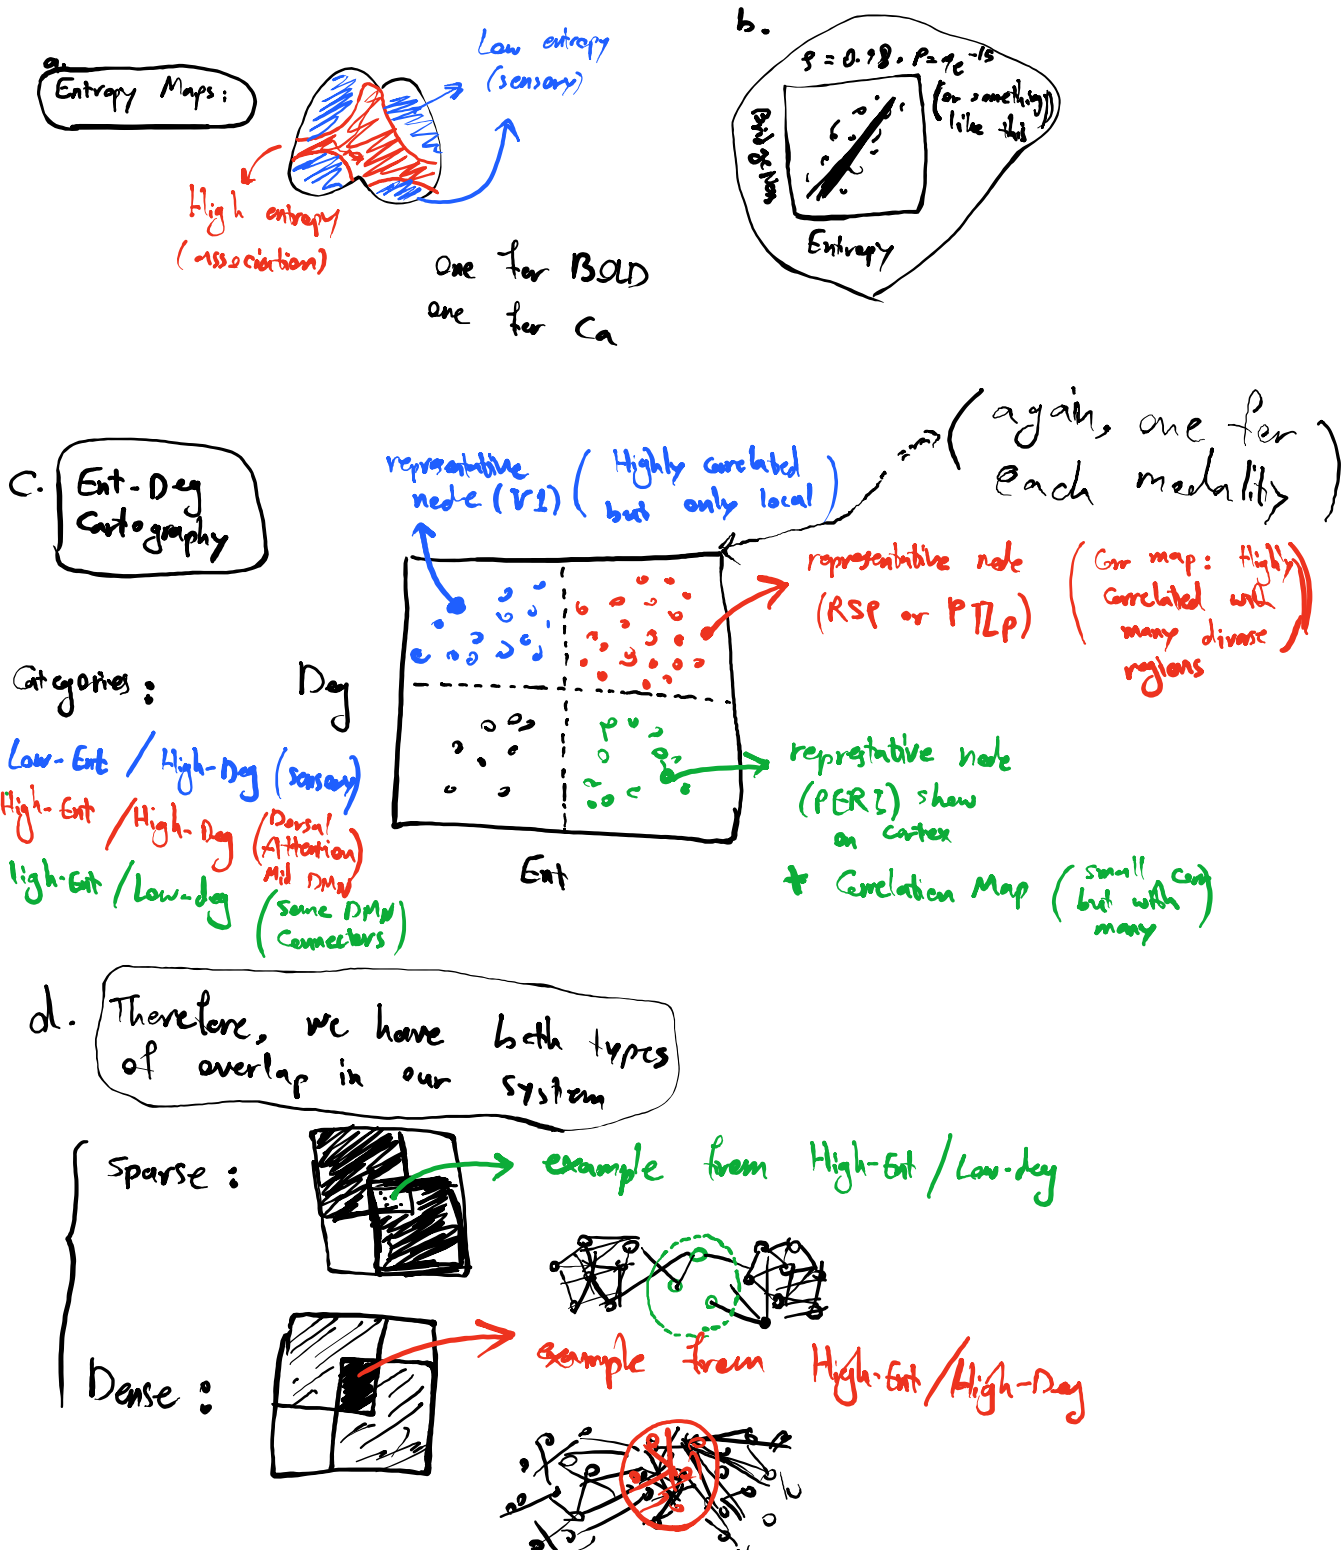 a.
Entropy Maps:
Low entropy
(sensory)
High entropy
(association)
one for BOLD
one for Ca
b.
ρ = 0.98. P=9e^-15
(or something
like this)
Entropy
C.
Ent-Deg
Cartography
representative
node (V1)
(Highly correlated
but only local)
(again, one for
each modality)
representative node
(RSP or PTLp)
(Corr map: Highly
correlated with
many diverse
regions
Categories:
Deg
Low-Ent / High-Deg (sensory)
High-Ent / High-Deg
(Dorsal
Attention
Mid DMN)
High-Ent / Low-deg
(some DMN
Connectors)
Ent
represtative node
(PERI) show
on cortex
* Correlation Map
(small corr
but with
many)
d.
Therefore, we have both types
of overlap in our system
Sparse:
example from High-Ent / Low-deg
Dense:
example from High-Ent / High-Deg